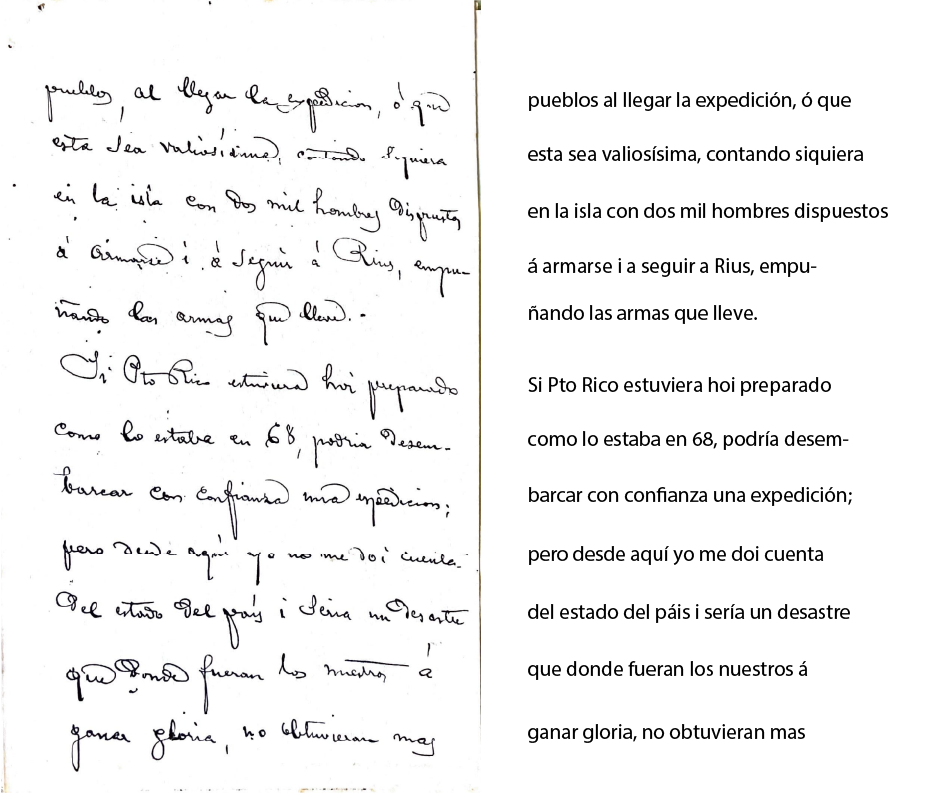 pueblos, al llegar la expedicion, ó que
esta sea valiosísima, contando siquiera
en la isla con dos mil hombres dispuestos
á armarse i á seguir á Rius, empu-
ñando las armas que lleve.-
Si Pto Rico estuviera hoi preparado
como lo estaba en 68, podria desem-
barcar con confianza una expedicion;
pero desde aquí yo no me doi cuenta
del estado del país i seria un desastre
que donde fueran los nuestros á
ganar gloria, no obtuvieran mas
pueblos al llegar la expedición, ó que
esta sea valiosísima, contando siquiera
en la isla con dos mil hombres dispuestos
á armarse i a seguir a Rius, empu-
ñando las armas que lleve.
Si Pto Rico estuviera hoi preparado
como lo estaba en 68, podría desem-
barcar con confianza una expedición;
pero desde aquí yo me doi cuenta
del estado del páis i sería un desastre
que donde fueran los nuestros á
ganar gloria, no obtuvieran mas